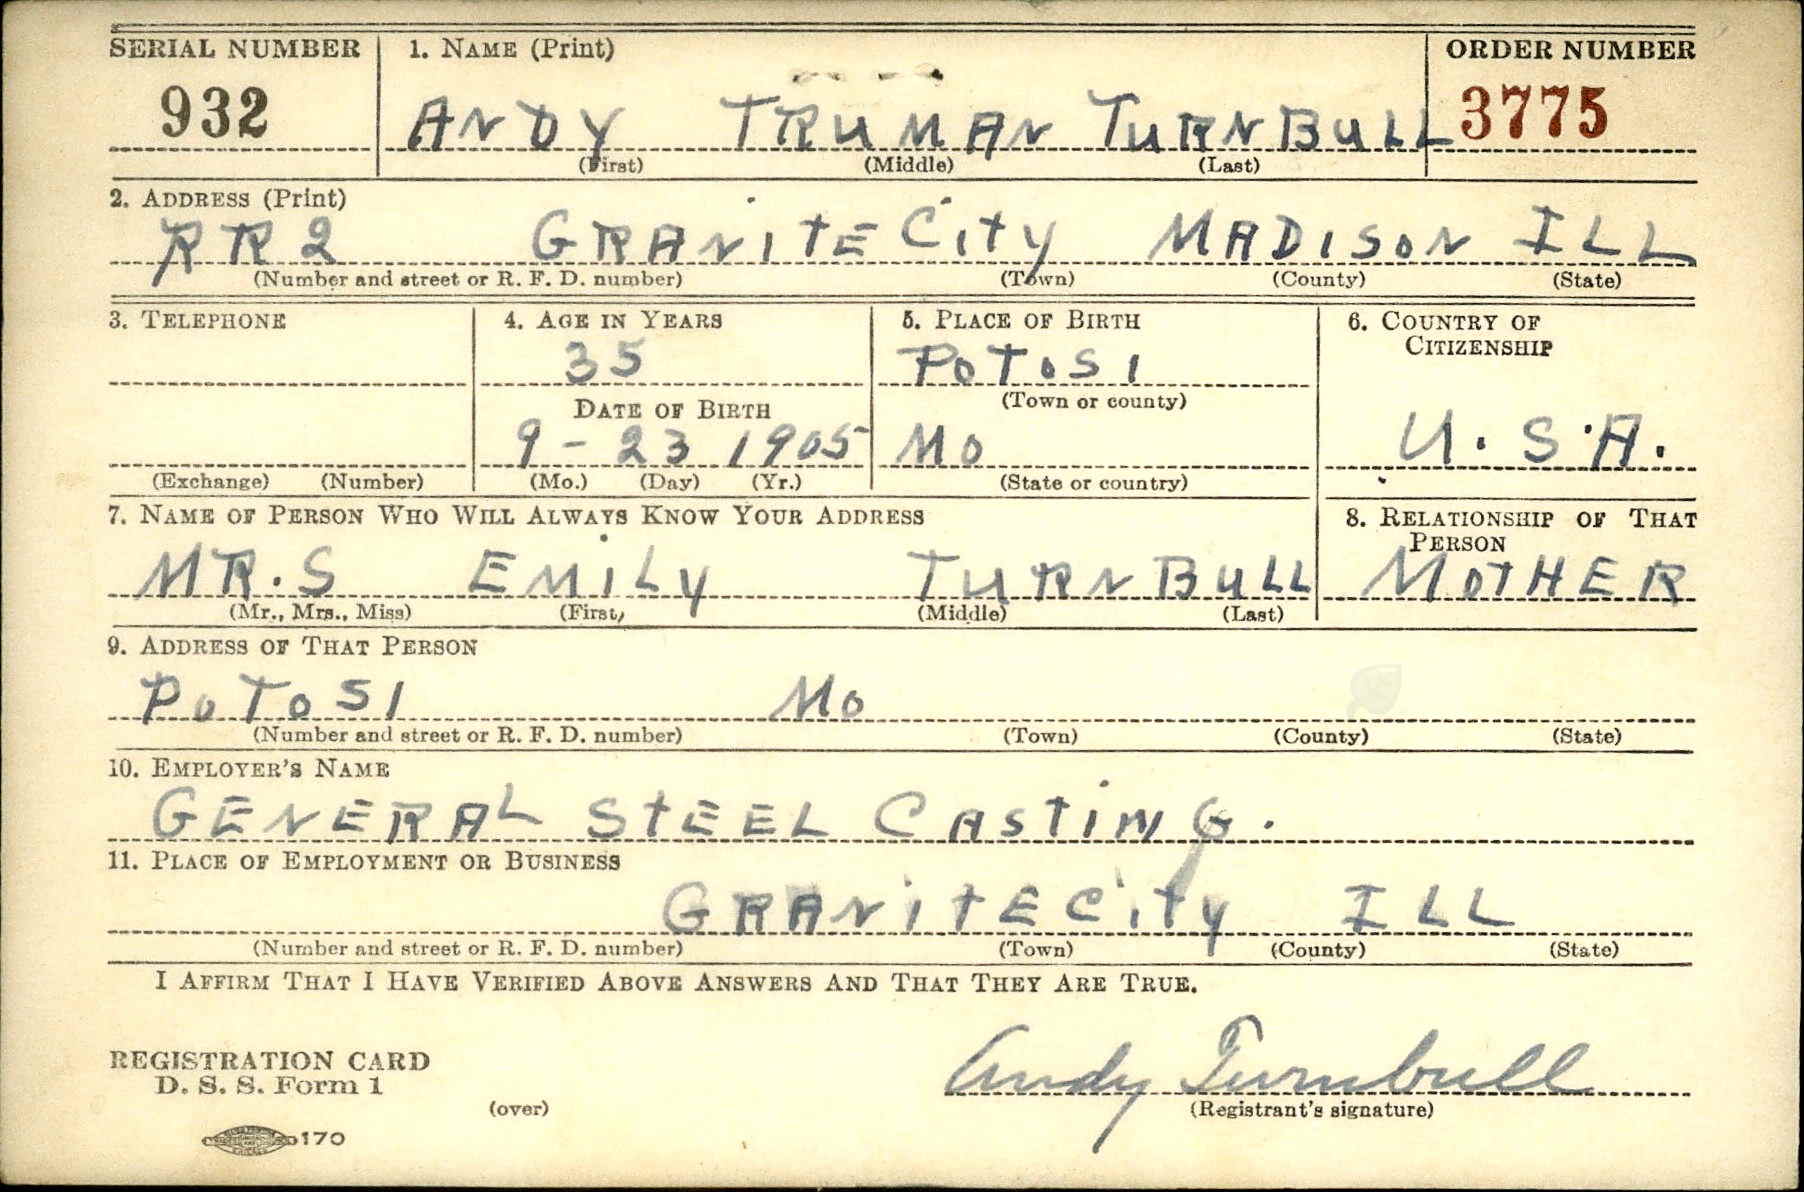 SERIAL NUMBER 1. NAME (Print) ORDER NUMBER
932 ANDY TRUMAN TURNBULL 3775
(First) (Middle) (Last)
2. ADDRESS (Print)
RR2 GRANITE CITY MADISON ILL
(Number and street or R. F. D. number) (Town) (County) (State)
3. TELEPHONE 4. AGE IN YEARS 5. PLACE OF BIRTH 6. COUNTRY OF CITIZENSHIP
35 POTOSI
DATE OF BIRTH (Town or county)
9-23 1905 MO U.S.A.
(Exchange) (Number) (Mo.) (Day) (Yr.) (State or country)
7. NAME OF PERSON WHO WILL ALWAYS KNOW YOUR ADDRESS 8. RELATIONSHIP OF THAT PERSON
MR.S EMILY TURNBULL MOTHER
(Mr., Mrs., Miss) (First) (Middle) (Last)
9. ADDRESS OF THAT PERSON
POTOSI MO
(Number and street or R. F. D. number) (Town) (County) (State)
10. EMPLOYER'S NAME
GENERAL STEEL CASTING.
11. PLACE OF EMPLOYMENT OR BUSINESS
GRANITE CITY ILL
(Number and street or R. F. D. number) (Town) (County) (State)
I AFFIRM THAT I HAVE VERIFIED ABOVE ANSWERS AND THAT THEY ARE TRUE.
REGISTRATION CARD
D. S. S. Form 1 Andy Turnbull
(over) (Registrant's signature)
170